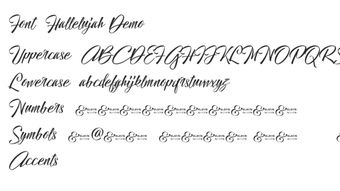 Font Hallelujah Demo
Uppercase ABCDEFGHIJKLMNOPQRS
Lowercase abcdefghijklmnopqrstuvwxyz
Numbers
Symbols @
Accents